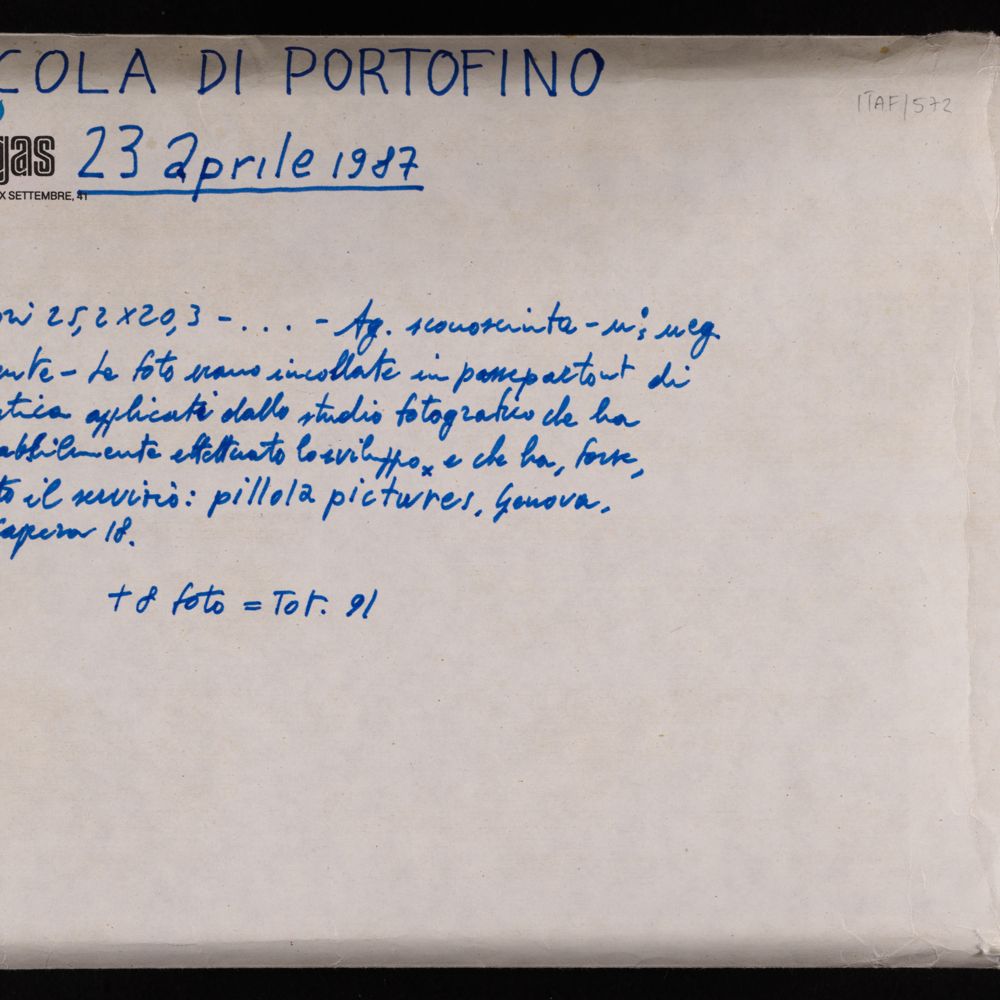 COLA DI PORTOFINO
ITAF/572
gas 23 aprile 1987
X SETTEMBRE, 41
oni 25,2x20,3 - . . . . - Ag. sconosciuta - n.i neg
ente - Le foto erano incollate in passepartout di
stica applicati dallo studio fotografico che ha
abbilmente effettuato lo sviluppo, e che ha, forse,
to il servizio: pillola pictures, Genova,
Capera 18.
+8 foto = Tot. 91